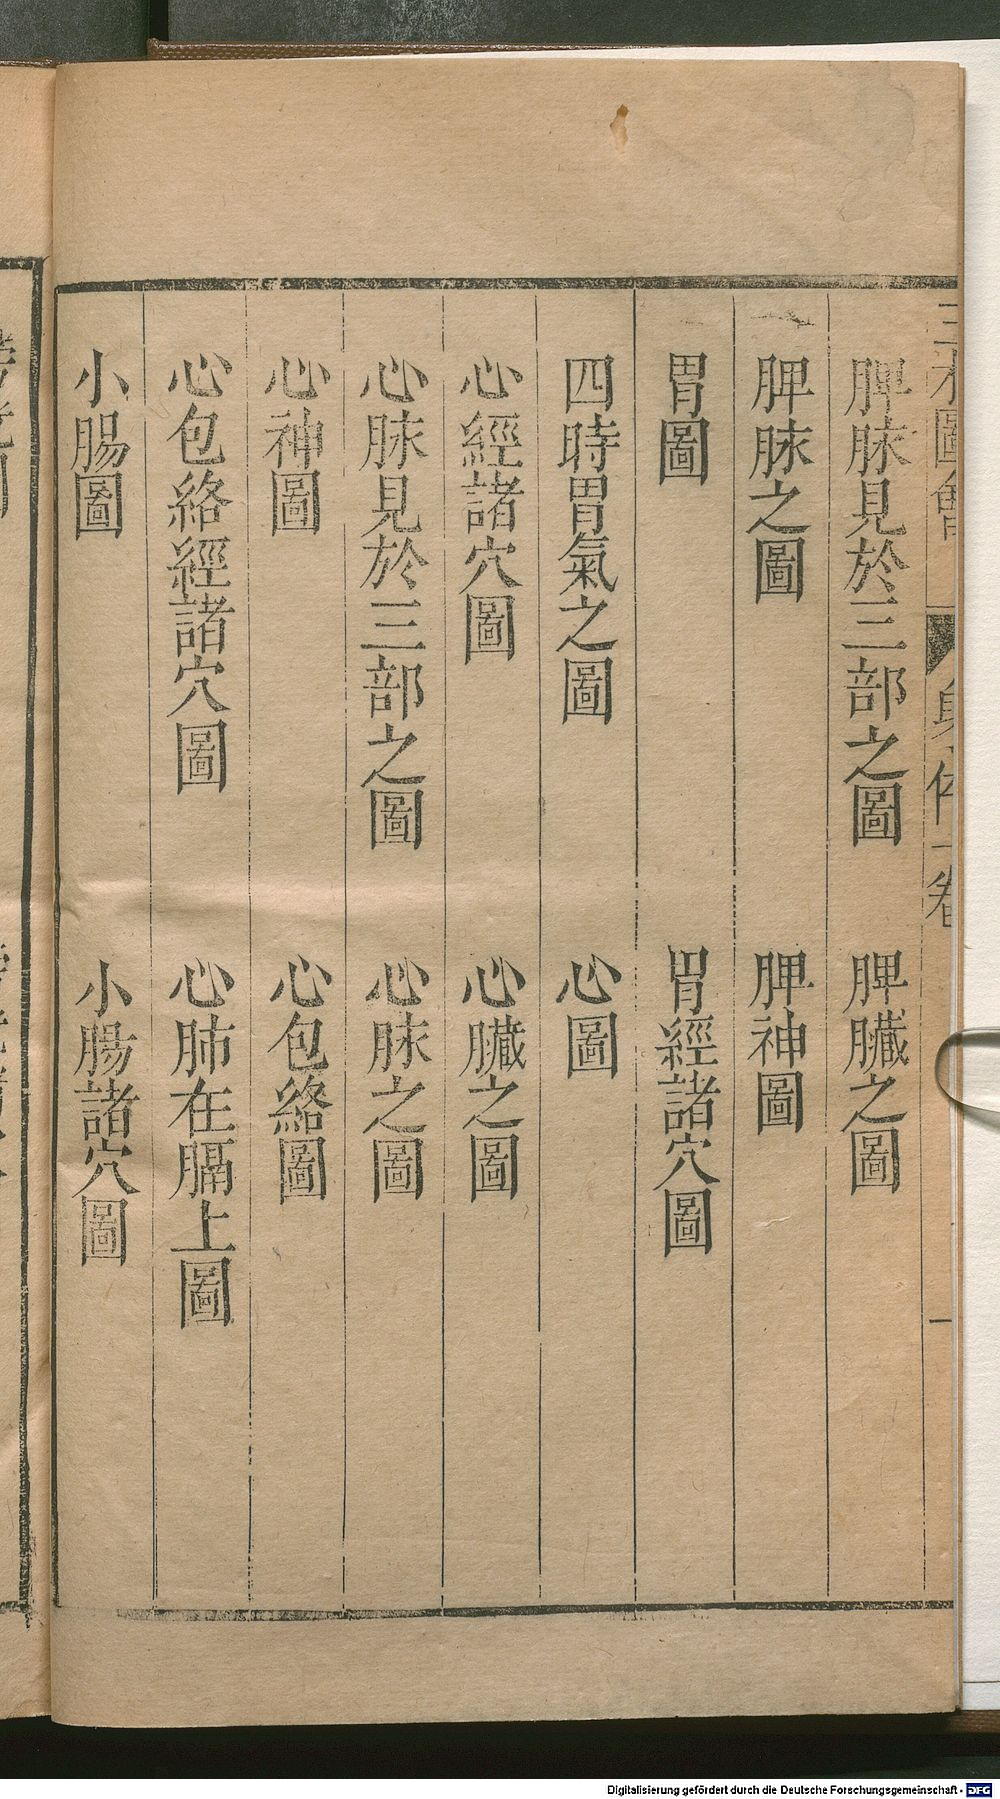 脾脉見於三部之圖　脾臓之圖
脾脉之圖　脾神圖
胃圖　胃經諸穴圖
四時胃氣之圖　心圖
心經諸穴圖　心臓之圖
心脉見於三部之圖　心脉之圖
心神圖　心包絡圖
心包絡經諸穴圖　心肺在膈上圖
小腸圖　小腸諸穴圖
Digitalisierung gefördert durch die Deutsche Forschungsgemeinschaft - DFG